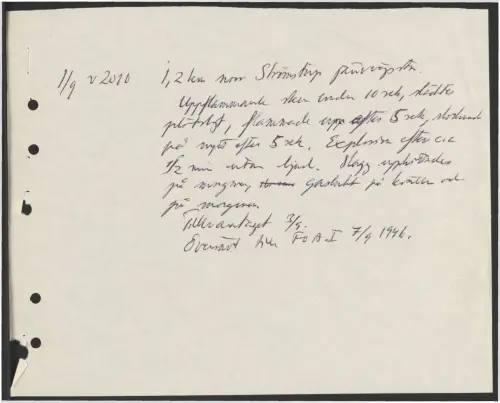 1/9 v 2010 1,2 km norr Strömstorp järnvägsstn.
Uppflammande sken under 10 sek, släcktes
plötsligt, flammade upp efter 5 sek, slocknade
på nytt efter 5 sek. Explosion efter c:a
1/2 min utan ljud. Slagg upphittades
på morgonen, gaslukt på kvällen och
på morgonen
Tillvarataget 3/9.
Översänt till FOA I 7/9 1946.